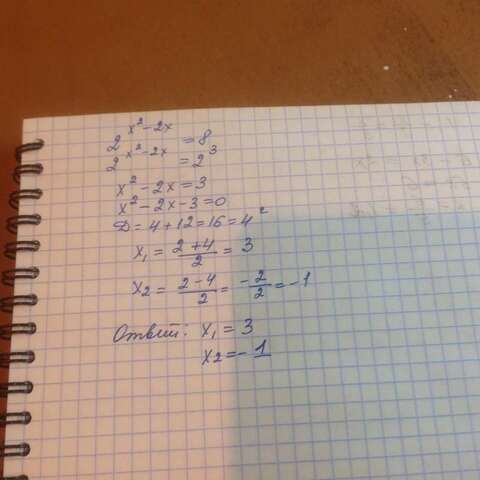 2^{x²-2x} = 8
2^{x²-2x} = 2³
x²-2x=3
x²-2x-3=0
D=4+12=16=4²
x₁ = (2+4)/2 = 3
x₂ = (2-4)/2 = -2/2 = -1
Ответ: x₁ = 3
x₂ = -1